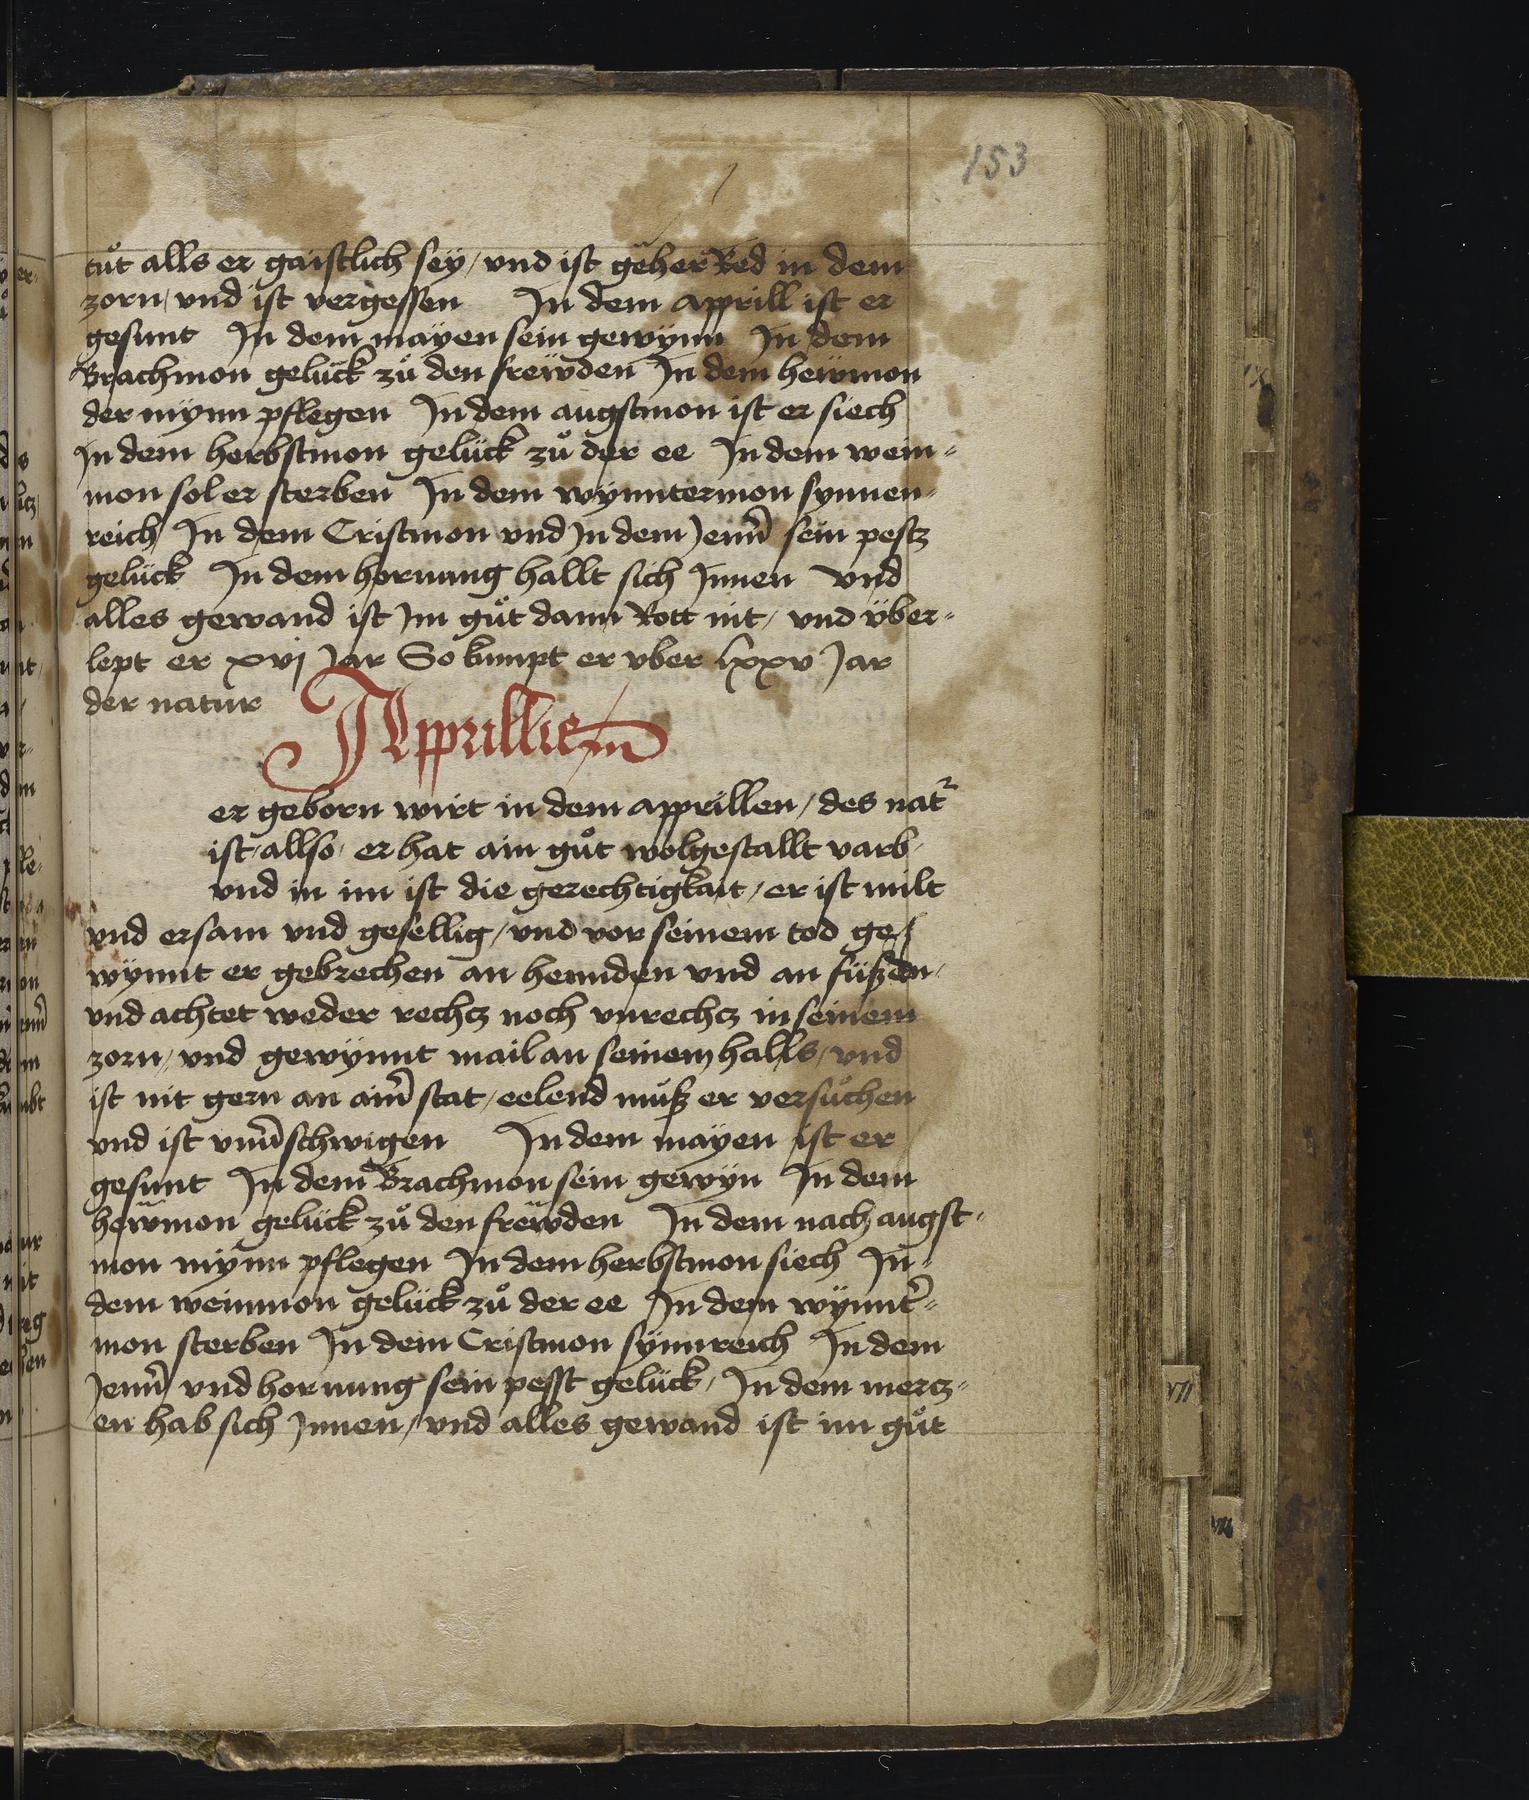 153
tuͦt alls er gaistlich seÿ / vnd ist gëher Red in dem
zorn / vnd ist vergessen In dem apprill ist er
gesunt In dem maÿen sein gewÿnn In dem
Brachmon gelück zuͦ den frewden In dem hewmon
der mÿnn pflegen In dem augstmon ist er siech
In dem herbstmon gelück zuͦ der ee In dem wein-
mon sol er sterben In dem wÿnntermon sÿnnen-
reich In dem Cristmon vnd In dem Jenn̄ sein pestz
gelück In dem hornung hallt sich Innen vnd
alles gewand ist Im guͦt dann Rott nit / vnd über-
lept er xvj Jar So kumpt er vber lxxv Jar
der natur
Apprillien
er geborn wirt in dem apprillen / des nat᷑
ist / allso / er hat ain guͦt wolgestallt varb /
vnd in im ist die gerechtigkait / er ist milt
vnd ersam vnd gesellig / vnd vor seinem tod ge/
wÿnnt er gebrechen an hennden vnd an füßen /
vnd achtet weder rechtz noch vnrechtz in seinem
zorn / vnd gewÿnnt mail an seinem halls / vnd
ist nit gern an aim̄ stat / eelend muͦß er versuͦchen
vnd ist vnūschwigen In dem maÿen ist er
gesunt In dem Brachmon sein gewÿn In dem
hewmon gelück zuͦ den frewden In dem nach augst-
mon mÿnn pflegen In dem herbstmon siech In-
dem weinmon gelück zuͦ der ee In dem wÿnnt̄-
mon sterben In dem Cristmon sÿnnreich In dem
Jenn̄ vnd hornung sein pesst gelück / In dem mertz-
en hab sich Innen / vnd alles gewand ist im guͦt
VII